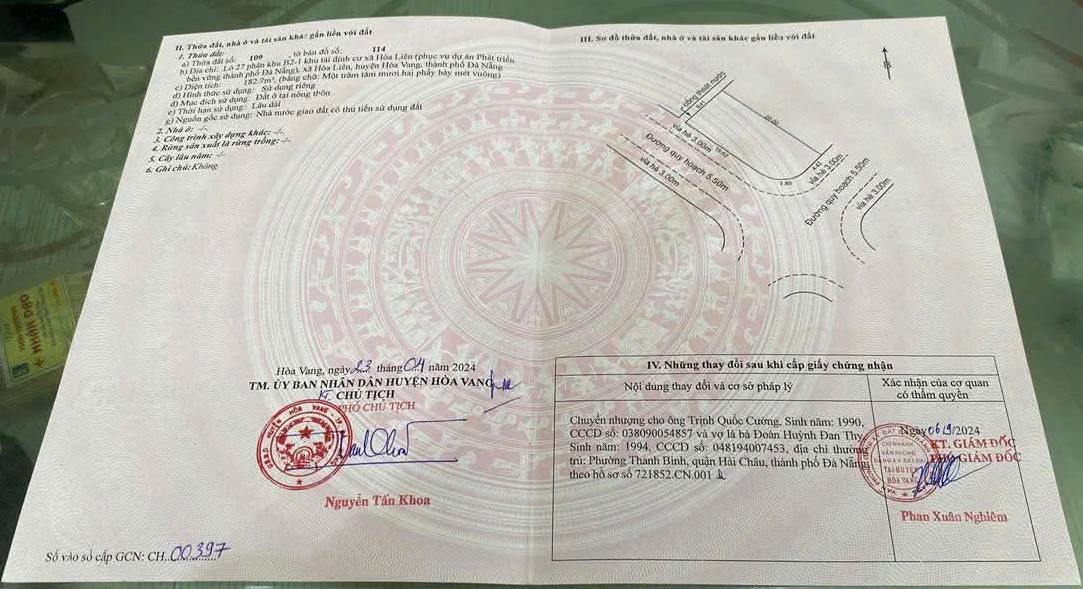 II. Thửa đất, nhà ở và tài sản khác gắn liền với đất
1. Thửa đất:
a) Thửa đất số: 109 , tờ bản đồ số: 114
b) Địa chỉ: Lô 27 phân khu B2-1 khu tái định cư xã Hòa Liên (phục vụ dự án Phát triển
bền vững thành phố Đà Nẵng), xã Hòa Liên, huyện Hòa Vang, thành phố Đà Nẵng
c) Diện tích: 182.7m², (bằng chữ: Một trăm tám mươi hai phẩy bảy mét vuông)
d) Hình thức sử dụng: Sử dụng riêng
đ) Mục đích sử dụng: Đất ở tại nông thôn
e) Thời hạn sử dụng: Lâu dài
g) Nguồn gốc sử dụng: Nhà nước giao đất có thu tiền sử dụng đất
2. Nhà ở: -/-
3. Công trình xây dựng khác: -/-
4. Rừng sản xuất là rừng trồng: -/-
5. Cây lâu năm: -/-
6. Ghi chú: Không
Hòa Vang, ngày 23 tháng 04 năm 2024
TM. ỦY BAN NHÂN DÂN HUYỆN HÒA VANG
KT. CHỦ TỊCH
PHÓ CHỦ TỊCH
Nguyễn Tấn Khoa
Số vào sổ cấp GCN: CH 00397
III. Sơ đồ thửa đất, nhà ở và tài sản khác gắn liền với đất
cống thoát nước
vỉa hè 3.00m
Đường quy hoạch 5.50m
vỉa hè 3.00m
20.00
15.02
7.85
4.42
vỉa hè 3.00m
Đường quy hoạch 5.50m
vỉa hè 3.00m
IV. Những thay đổi sau khi cấp giấy chứng nhận
Nội dung thay đổi và cơ sở pháp lý
Xác nhận của cơ quan
có thẩm quyền
Chuyển nhượng cho ông Trịnh Quốc Cường, Sinh năm: 1990,
CCCD số: 038090054857 và vợ là bà Đoàn Huỳnh Đan Thy,
Sinh năm: 1994, CCCD số: 048194007453, địa chỉ thường
trú: Phường Thanh Bình, quận Hải Châu, thành phố Đà Nẵng
theo hồ sơ số 721852.CN.001
Ngày 06/9/2024
KT. GIÁM ĐỐC
PHÓ GIÁM ĐỐC
VĂN PHÒNG
ĐĂNG KÝ ĐẤT ĐAI
TẠI HUYỆN
HÒA VANG
Phan Xuân Nghiêm